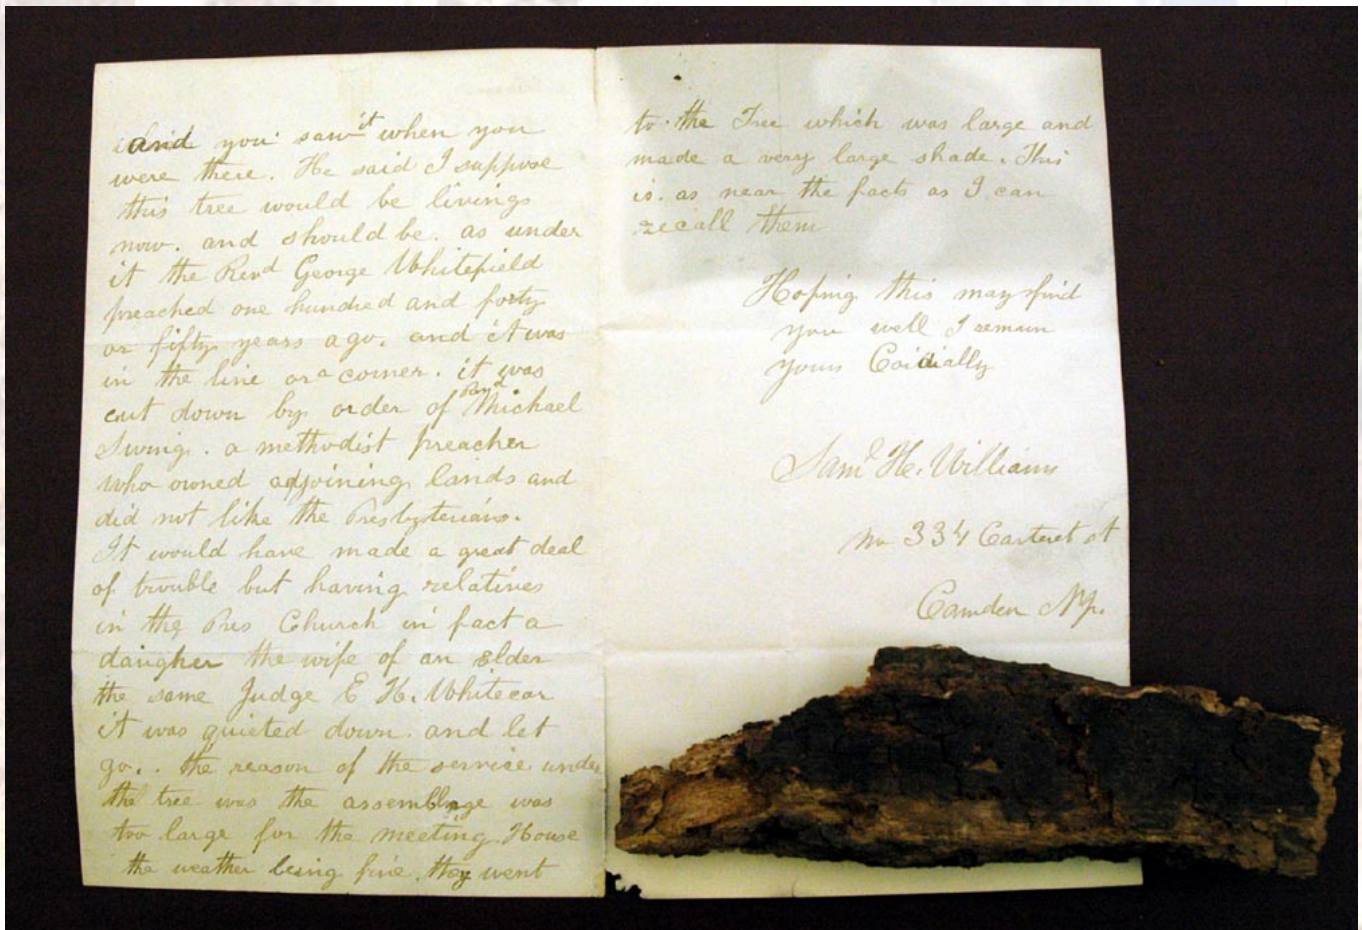 and you saw it when you
were there. He said I suppose
this tree would be livings
now. and should be. as under
it the Revd George Whitefield
preached one hundred and forty
or fifty years ago. and it was
in the line or a corner. it was
cut down by order of Revd. Michael
Swing. a methodist preacher
who owned adjoining lands and
did not like the Presbyterians.
It would have made a great deal
of trouble but having relatives
in the Pres Church in fact a
daugher the wife of an elder
the same Judge E H. Whitecar
it was quieted down. and let
go.. the reason of the service under
the tree was the assemblage was
too large for the meeting House
the weather being fine. they went
to the Tree which was large and
made a very large shade. This
is. as near the facts as I can
recall them
Hoping this may find
you well I remain
yours Cordially
Saml H. Williams
No 334 Carteret st
Camden NJ.